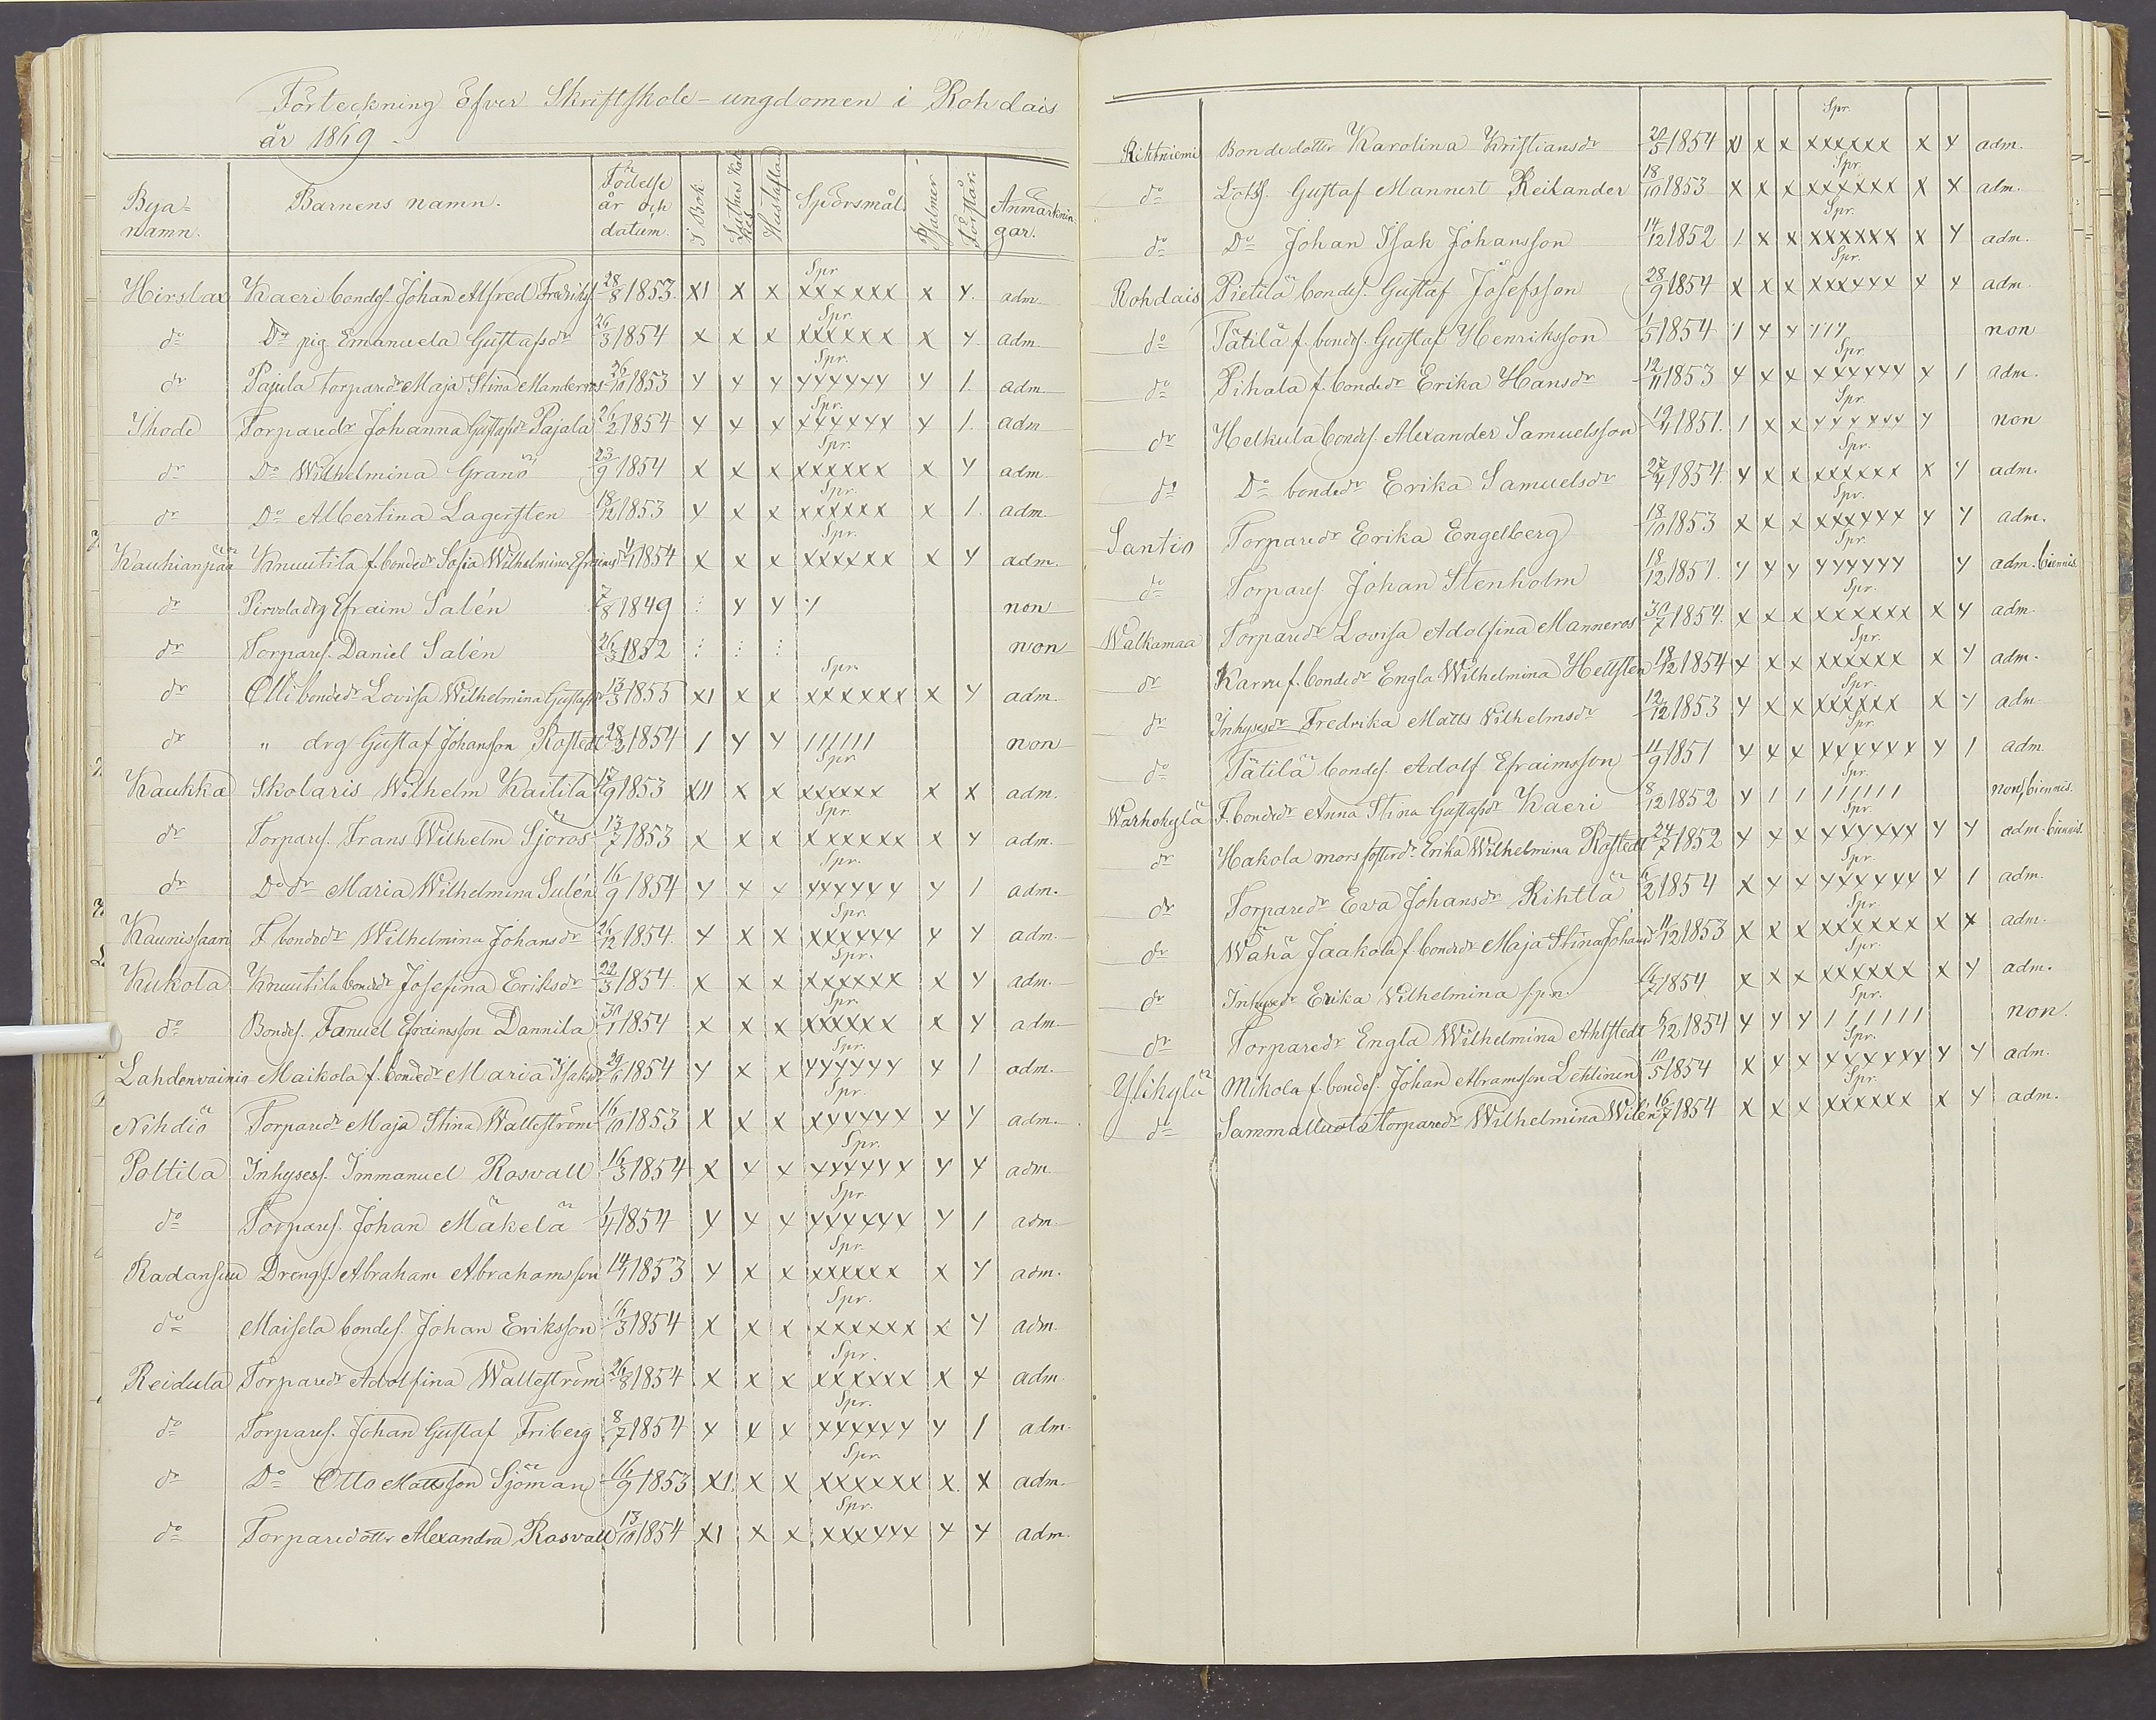 Förteckning öfver Skriftskole-ungdomen i Rohdais
år 1869.
Bya-namn. Barnens namn. Födelse år och datum. I Bok. Luthers Kat. Hustaflan Spörsmål. Psalmer Förstår. Anmärkningar.
Hirslax Kaeri bondes. Johan Alfred Fredrikss. 28/8 1853 XI X X Spr. XXXXXX X Y. adm.
do Do pig Emanuela Gustafsdr 26/3 1854 X X X Spr. XXXXXX X Y. adm.
dr Pajula torparedr Maja Stina Manderoos 26/10 1853 Y Y Y Spr. YYYYYY Y 1. adm.
Ihode Torparedr Johanna Gustafsdr Pajala 26/2 1854 Y Y X Spr. XXXXYX Y 1. adm.
dr Do Wilhelmina Granö 23/9 1854 X X X Spr. XXXXXX X Y adm.
dr Do Albertina Lagersten 18/12 1853 Y X X Spr. XXXXXX X 1. adm.
Kauhianpää Knuutila f. bondedr Sofia Wilhelmina Efraimsdr 4/1 1854 X X X Spr. XXXXXX X Y adm.
dr Pirvola drg Efraim Salén 7/8 1849 : Y Y Y non
dr Torpares. Daniel Salén 26/3 1852 : : : non
dr Olli bondedr Lovisa Wilhelmina Gustafsdr 13/3 1855 XI X X Spr. XXXXXX X Y adm.
dr " drg Gustaf Johansson Rostedt 28/2 1854 1 Y Y 111111 non
Kaukka Skolaris Wilhelm Kaitila 17/9 1853 XII X X Spr. XXXXXX X X adm.
dr Torpares. Frans Wilhelm Sjöros 13/7 1853 X X X Spr. XXXXXX X Y adm.
dr Do dr Maria Wilhelmina Sulén 16/9 1854 Y Y Y Spr. YYYYYY Y 1 adm.
Kaunissaari F. bondedr Wilhelmina Johansdr 26/12 1854. Y X X Spr. XXXYYY Y Y adm.
Kukola Knuutila bondedr Josefina Eriksdr 22/3 1854. X X X Spr. XXXXXX X Y adm.
do Bondes. Fanuel Efraimsson Dannila 30/1 1854 X X X Spr. XXXXXX X Y adm.
Lahdenvainio Maikola f. bondedr Maria Isaksdr 29/6 1854 Y X X Spr. YYYYYY Y 1 adm.
Nihdiö Torparedr Maja Stina Walleström 16/10 1853 X X X Spr. XYYYYX Y Y adm.
Poltila Inhyses. Immanuel Rosvall 16/3 1854 X Y X Spr. YYYYYX Y Y adm
do Torpares. Johan Mäkelä 1/4 1854 Y Y Y Spr. YYYYYX Y 1 adm.
Radansuu Drengs. Abraham Abrahamsson 14/1 1853 Y X X Spr. XXXXXX X Y adm.
do Maisela bondes. Johan Eriksson 16/3 1854 X X X Spr. XXXXXX X Y adm.
Reidula Torparedr Adolfina Walleström 26/8 1854 X X X Spr. XXXXXX X Y adm
do Torpares. Johan Gustaf Friberg 8/7 1854 Y Y X Spr. XYXYYY Y 1 adm.
dr Do Otto Mattsson Sjöman 16/9 1853 XI. X X Spr. XXXXXX X. X adm.
do Torparedotter Alexandra Rosvall 13/10 1854 XI X X Spr. XXXYYY Y Y adm.
Rihtniemi Bondedotter Karolina Kristiansdr 20/5 1854 XI X X Spr. XXXXXX X Y adm.
do Lotss. Gustaf Mannert Reilander 18/10 1853 X X X Spr. XXXXXX X X adm.
do Do Johan Isak Johansson 14/12 1852 1 X X Spr. XXXXXX X Y adm.
Rohdais Pietilä bondes. Gustaf Josefsson 28/9 1854 X X X Spr. XXXXYX Y Y adm.
do Tätilä f. bondes. Gustaf Henriksson 1/5 1854 1 Y Y YIIY non
do Pihala f. bondedr Erika Hansdr 12/11 1853 Y X X Spr. XXXYYY X 1 adm.
dr Helkula bondes. Alexander Samuelsson 19/4 1851. 1 X X Spr. YYYYYY Y non
do Do bondedr Erika Samuelsdr 27/4 1854. Y X X Spr. XXXXXX X Y adm.
Santio Torparedr Erika Engelberg 18/10 1853 X X X Spr. XXXYYY Y Y adm.
do Torpares. Johan Stenholm 18/12 1851. Y Y Y Spr. YYYYYY Y adm. biennis.
Walkamaa Torparedr Lovisa Adolfina Manneros 30/7 1854. X X X Spr. XXXXXX X Y adm.
dr Karru f. bondedr Engla Wilhelmina Hellsten 18/12 1854 Y X X Spr. XXXXXX X Y adm.
dr Inhysesdr Fredrika Matts Wilhelmsdr 12/12 1853 Y X X Spr. XXXXXX X Y adm
do Tätilä bondes. Adolf Efraimsson 11/9 1851 Y Y X Spr. XXXXYY Y 1 adm.
Warhokylä F. bondedr Anna Stina Gustafsdr Kaeri 8/12 1852 Y 1 1 Spr. 111111 non, biennis.
dr Hakola morsfosterdr Erika Wilhelmina Rostedt 24/7 1852 Y Y X Spr. YXYYYY Y Y adm. biennis.
dr Torparedr Eva Johansdr Rihtlä 6/2 1854 X Y Y Spr. YYYYYY Y 1 adm.
dr Wähä Jaakola f. bondedr Maja Stina Johansdr 11/12 1853 X X X Spr. XXXXXX X X adm.
dr Inhysedr Erika Wilhelmina 1854 X X X Spr. XXXXXX X Y adm.
dr Torparedr Engla Wilhelmina Ahlstedt 6/12 1854 Y Y Y Spr. 111111 non.
Ylikylä Mikola f. bondes. Johan Abramsson Lehtinen 10/5 1854 X Y X Spr. YXYYYY Y Y adm.
do Sammalluoto torparedr Wilhelmina Wilén 16/7 1854 X X X Spr. XXXXXX X Y adm.